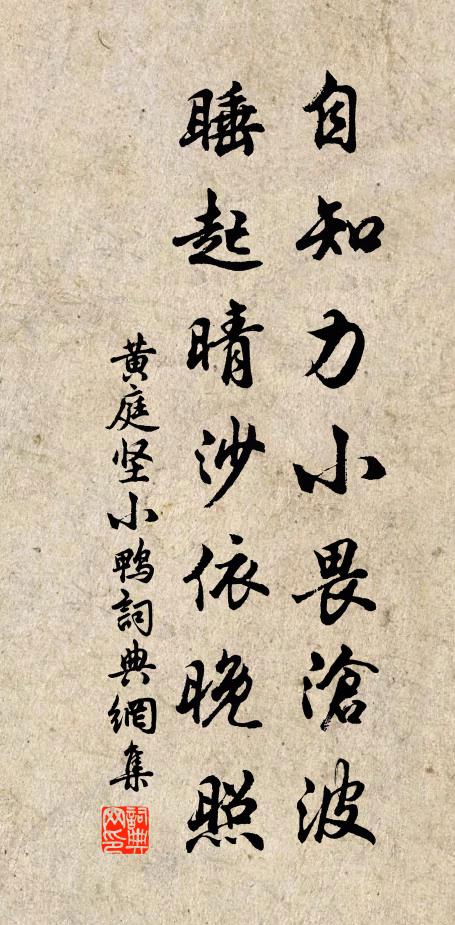 自知力小畏滄波
睡起晴沙依晚照
黄庭坚小鴨詞典網集
詞典網印